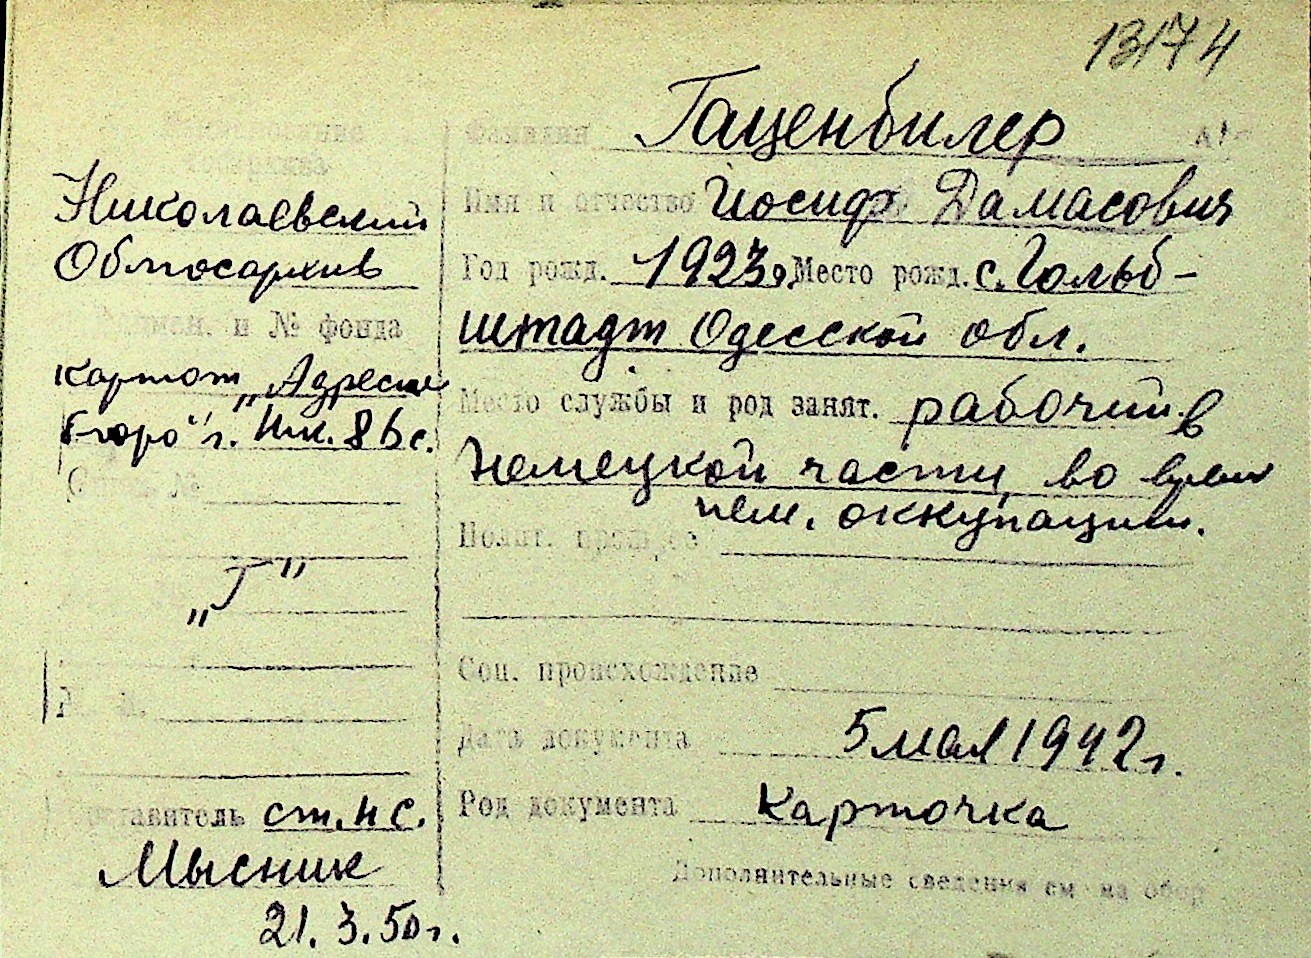 13174
Наименование
госархива
Николаевский
Облгосархив
Наимен. и № фонда
картот „Адресное
бюро" г. Ник.
Опись №
„Г"
Составитель ст. н с.
Мысник
21. 3. 50 г.
Фамилия Гаценбилер
Имя и отчество Иосиф Дамасович
Год рожд. 1923 г. Место рожд. с. Гольб-
штадт Одесской обл.
Место службы и род занят. рабочий в
Немецкой части, во время
нем. оккупации.
Полит. прошлое
Соц. происхождение
Дата документа 5 мая 1942 г.
Род документа Карточка
Дополнительные сведения см на обор